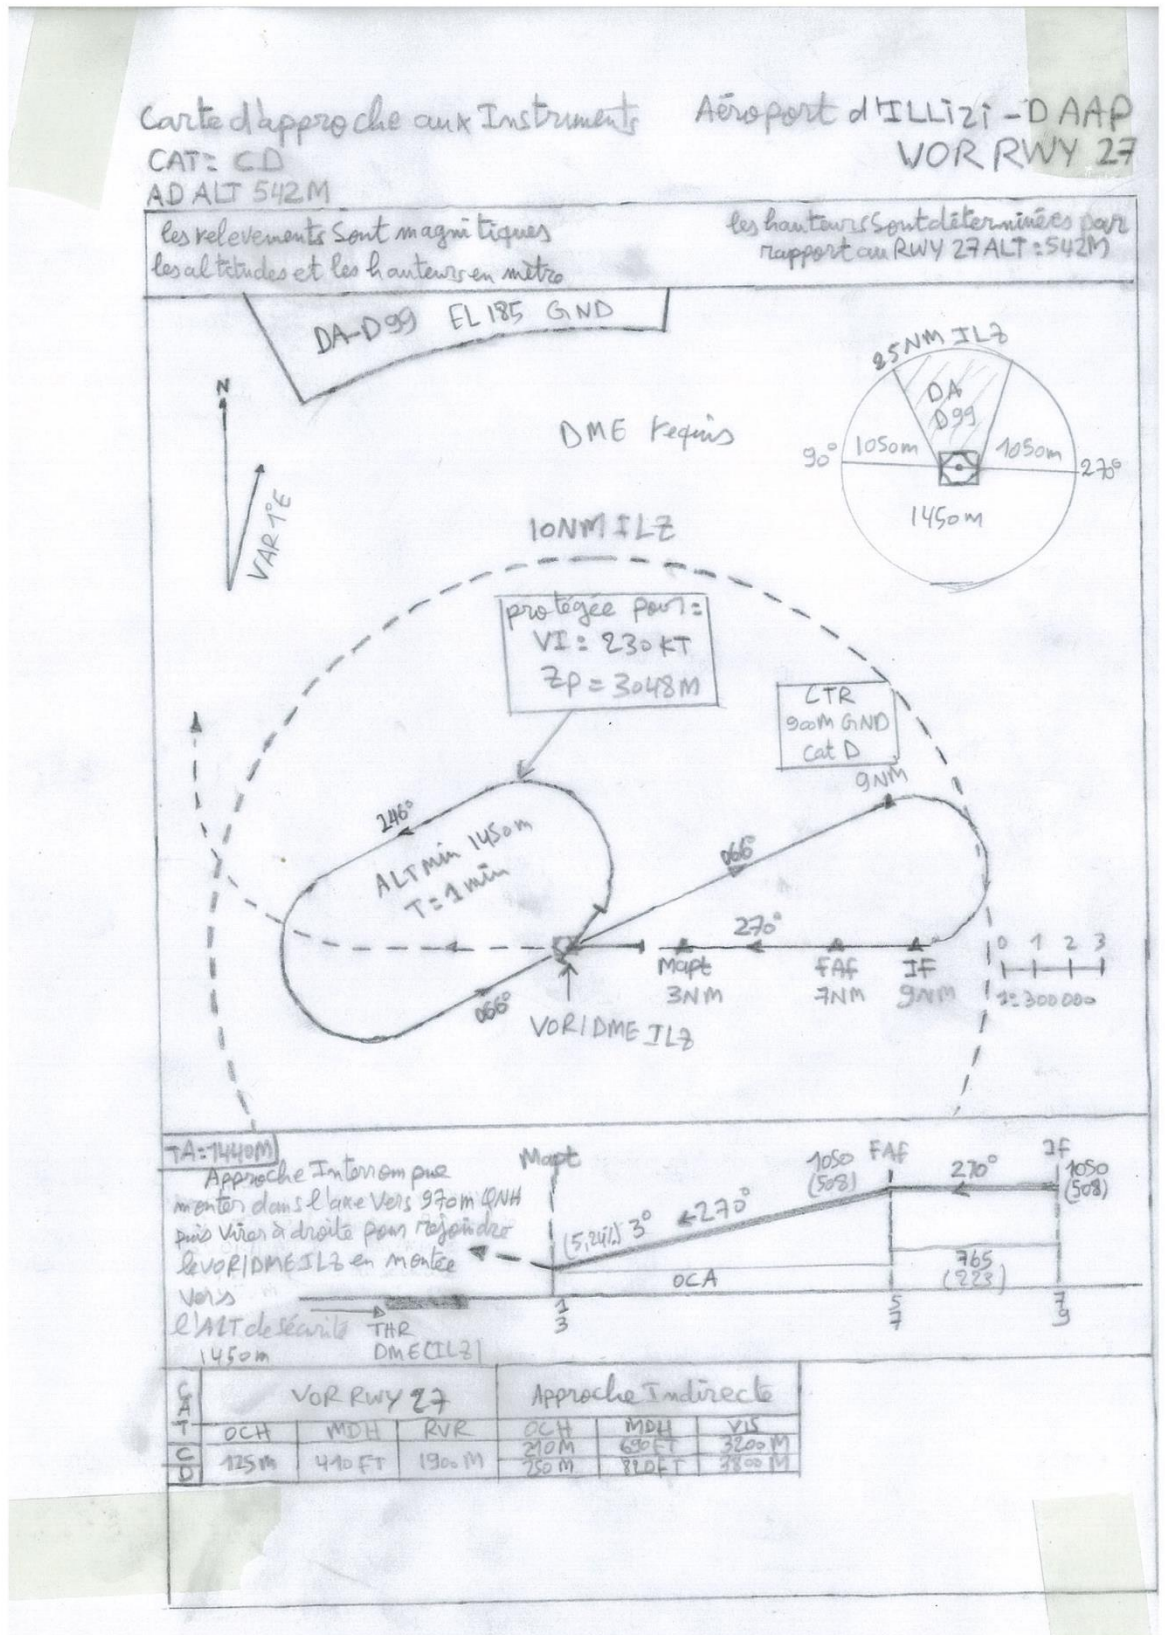 Carte d'approche aux Instruments
CAT: CD
AD ALT 542M
Aéroport d'ILLizi - DAAP
VOR RWY 27
les relevements Sont magnitiques
les altitudes et les hauteurs en mètre
les hauteurs Sont déterminées par
rapport au RWY 27 ALT : 542M
DA-D99 EL185 GND
N
VAR 1°E
DME requis
25NM ILZ
DA
D99
90°
1050m
1050m
270°
1450m
10NM ILZ
protégée pour :
VI : 230KT
Zp = 3048M
CTR
900m GND
Cat D
9NM
246°
ALT min 1450m
T = 1min
066°
066°
270°
Mapt
3NM
FAF
7NM
IF
9NM
0 1 2 3
1:300000
VOR/DME ILZ
TA=1440M
Approche Interrompue
monter dans l'axe vers 970m QNH
puis virer à droite pour rejoindre
le VOR/DME ILZ en montée
vers
l'ALT de sécurité
1450m
Mapt
FAF
IF
1050
(508)
270°
1050
(508)
(5,24%) 3°
270°
OCA
765
(223)
THR
DME(ILZ)
1
3
5
7
7
9
CAT
VOR RWY 27
Approche Indirecte
OCH MDH RVR OCH MDH VIS
C 210M 690FT 3200M
125m 410FT 1900M
D 250M 820FT 3800M